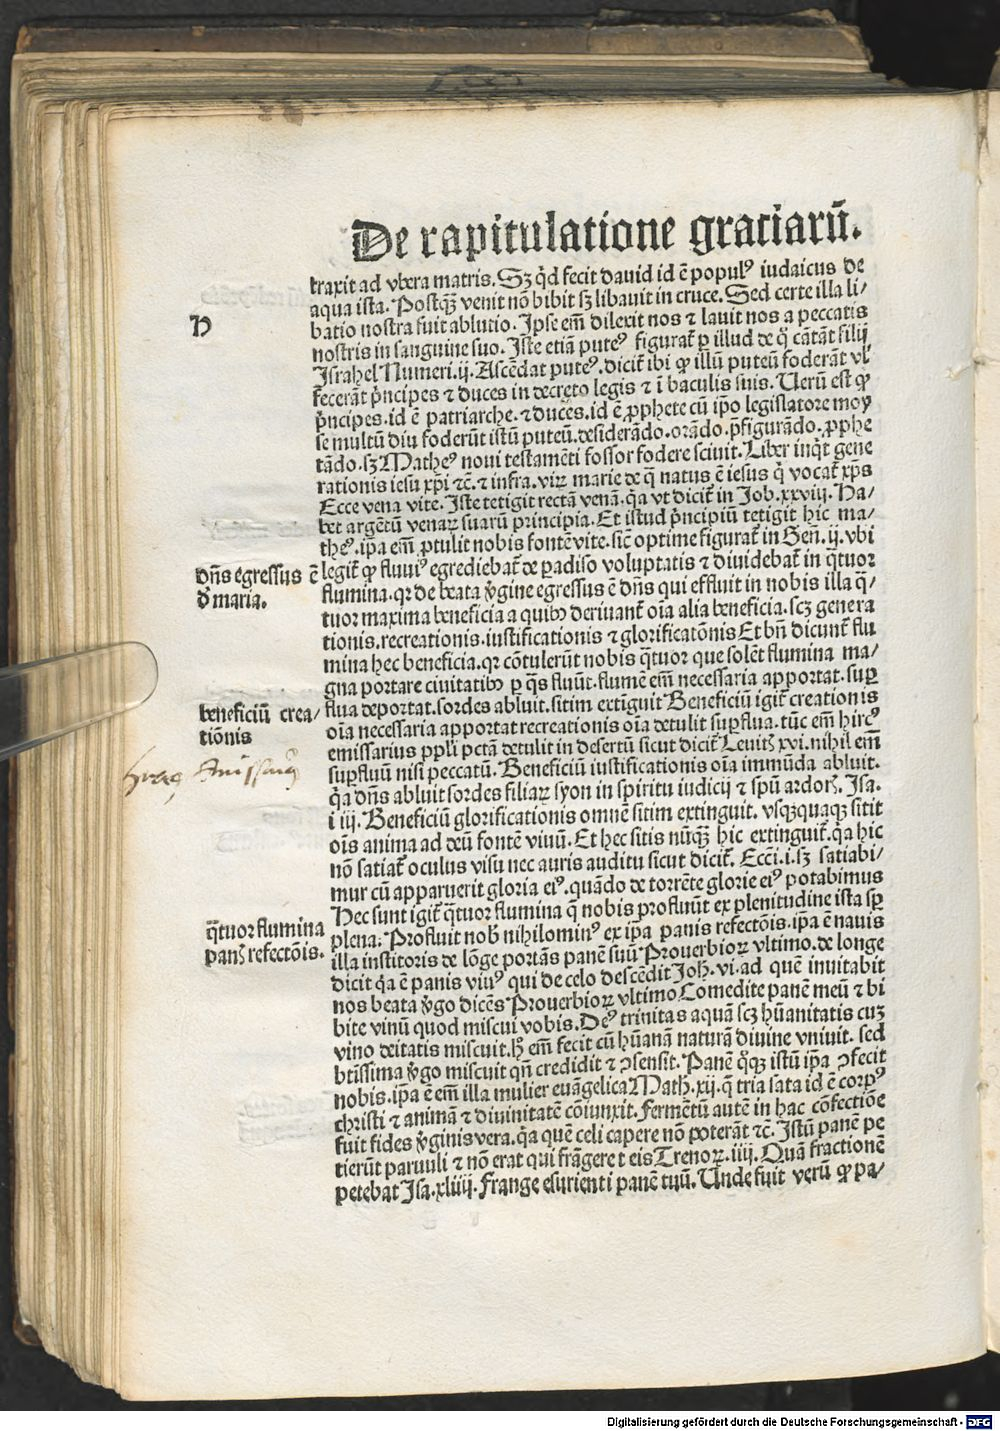 De rapitulatione graciarū.
traxit ad vbera matris. Sꝫ qd̄ fecit dauid id ē populꝰ iudaicus de
aqua ista. Postqꝫ venit nō bibit sꝫ libauit in cruce. Sed certe illa li/
D
batio nostra fuit ablutio. Ipse em̄ dilexit nos ⁊ lauit nos a peccatis
nostris in sanguine suo. Iste etiā puteꝰ figurat̄ ꝑ illud de q̊ cātāt filij
Israhel Numeri. ij. Ascēdat puteꝰ. dicit̄ ibi ꝙ illū puteū foderāt vl̓
fecerāt p̄ncipes ⁊ duces in decreto legis ⁊ ī baculis suis. Verū est ꝙ
p̄ncipes. id ē patriarche. ⁊ duces. id ē ꝓphete cū ip̄o legislatore moy
se multū diu foderūt istū puteū. desiderādo. orādo. p̄figurādo. ꝓphe
tādo. sꝫ Matheꝰ noui testamēti fossor fodere sciuit. Liber inq̇t gene
rationis iesu xp̄i ⁊c̄. ⁊ infra. virꝫ marie de q̄ natus ē iesus q̇ vocat̄ xp̄s
Ecce vena vite. Iste tetigit rectā venā. q̇a vt dicit̄ in Job. xxviij. Ha/
bet argētū venaꝝ suarū principia. Et istud p̄ncipiū tetigit hic ma/
theꝰ. ip̄a em̄ ꝓtulit nobis fontē vite. sic̄ optime figurat̄ in Gen̄. ij. vbi
dn̄s egressus ē
legit̄ ꝙ fluuiꝰ egrediebat̄ de ꝑadiso voluptatis ⁊ diuidebat̄ in q̄tuor
d̓ maria.
flumina. qꝛ de beata v̓gine egressus ē dn̄s qui effluit in nobis illa q̄/
tuor maxima beneficia a quibꝫ deriuant̄ oīa alia beneficia. scꝫ genera
tionis. recreationis. iustificationis ⁊ glorificatōnis Et bn̄ dicunt̄ flu
mina hec beneficia. qꝛ cōtulerūt nobis q̄tuor que solēt flumina ma/
gna portare ciuitatibꝫ ꝑ q̄s fluūt. flumē em̄ necessaria apportat. suꝑ
beneficiū crea/
tionis
flua deportat. sordes abluit. sitim extīguit Beneficiū igit̄ creationis
oīa necessaria apportat recreationis oīa detulit suꝑflua. tūc em̄ hircꝰ
emissarius pp̄li pctā detulit in desertū sicut dicit̄ Leuit̓ xvi. nihil em̄
hircꝰ Emissariꝰ
suꝑfluū nisi peccatū. Beneficiū iustificationis oīa immūda abluit.
q̇a dn̄s abluit sordes filiaꝝ syon in spiritu iudicij ⁊ spū ardor̓. Isa.
i iij. Beneficiū glorificationis omnē sitim extinguit. vsqꝫquaqꝫ sitit
oīs anima ad deū fontē viuū. Et hec sitis nūqꝫ hic extinguit̄. q̇a hic
nō satiat̄ oculus visu nec auris auditu sicut dicit̄. Ecc̄i. i. sꝫ satiabi/
mur cū apparuerit gloria eiꝰ. quādo de torrēte glorie eiꝰ potabimus
Hec sunt igit̄ q̄tuor flumina q̄ nobis profluūt ex plenitudine ista sꝑ
q̄tuor flumina
pan̓ refectōis.
plena. Profluit nob̓ nihilominꝰ ex ip̄a panis refectōis. ip̄a ē nauis
illa institoris de lōge portās panē suū Prouerbioꝝ vltimo. de longe
dicit q̇a ē panis viuꝰ qui de celo descēdit Joh̓. vi. ad quē inuitabit
nos beata v̓go dicēs Prouerbioꝝ vltimo Comedite panē meū ⁊ bi
bite vinū quod miscui vobis. Deꝰ trinitas aquā scꝫ hūanitatis cuꝫ
vino deitatis miscuit. h̓ em̄ fecit cū hūanā naturā diuine vniuit. sed
btīssima v̓go miscuit qn̄ credidit ⁊ ɔsensit. Panē q̊qꝫ istū ip̄a ɔfecit
nobis. ip̄a ē em̄ illa mulier euāgelica Math̓. xij. q̄ tria sata id ē corpꝰ
christi ⁊ animā ⁊ diuinitatē cōiunxit. Fermētū autē in hac cōfectiōe
fuit fides v̓ginis vera. q̇a quē celi capere nō poterāt ⁊c̄. Istū panē pe
tierūt paruuli ⁊ nō erat qui frāgeret eis Trenoꝝ. iiij. Quā fractionē
petebat Isa. xliiij. Frange esurienti panē tuū. Unde fuit verū ꝙ pa/
Digitalisierung gefördert durch die Deutsche Forschungsgemeinschaft - DFG